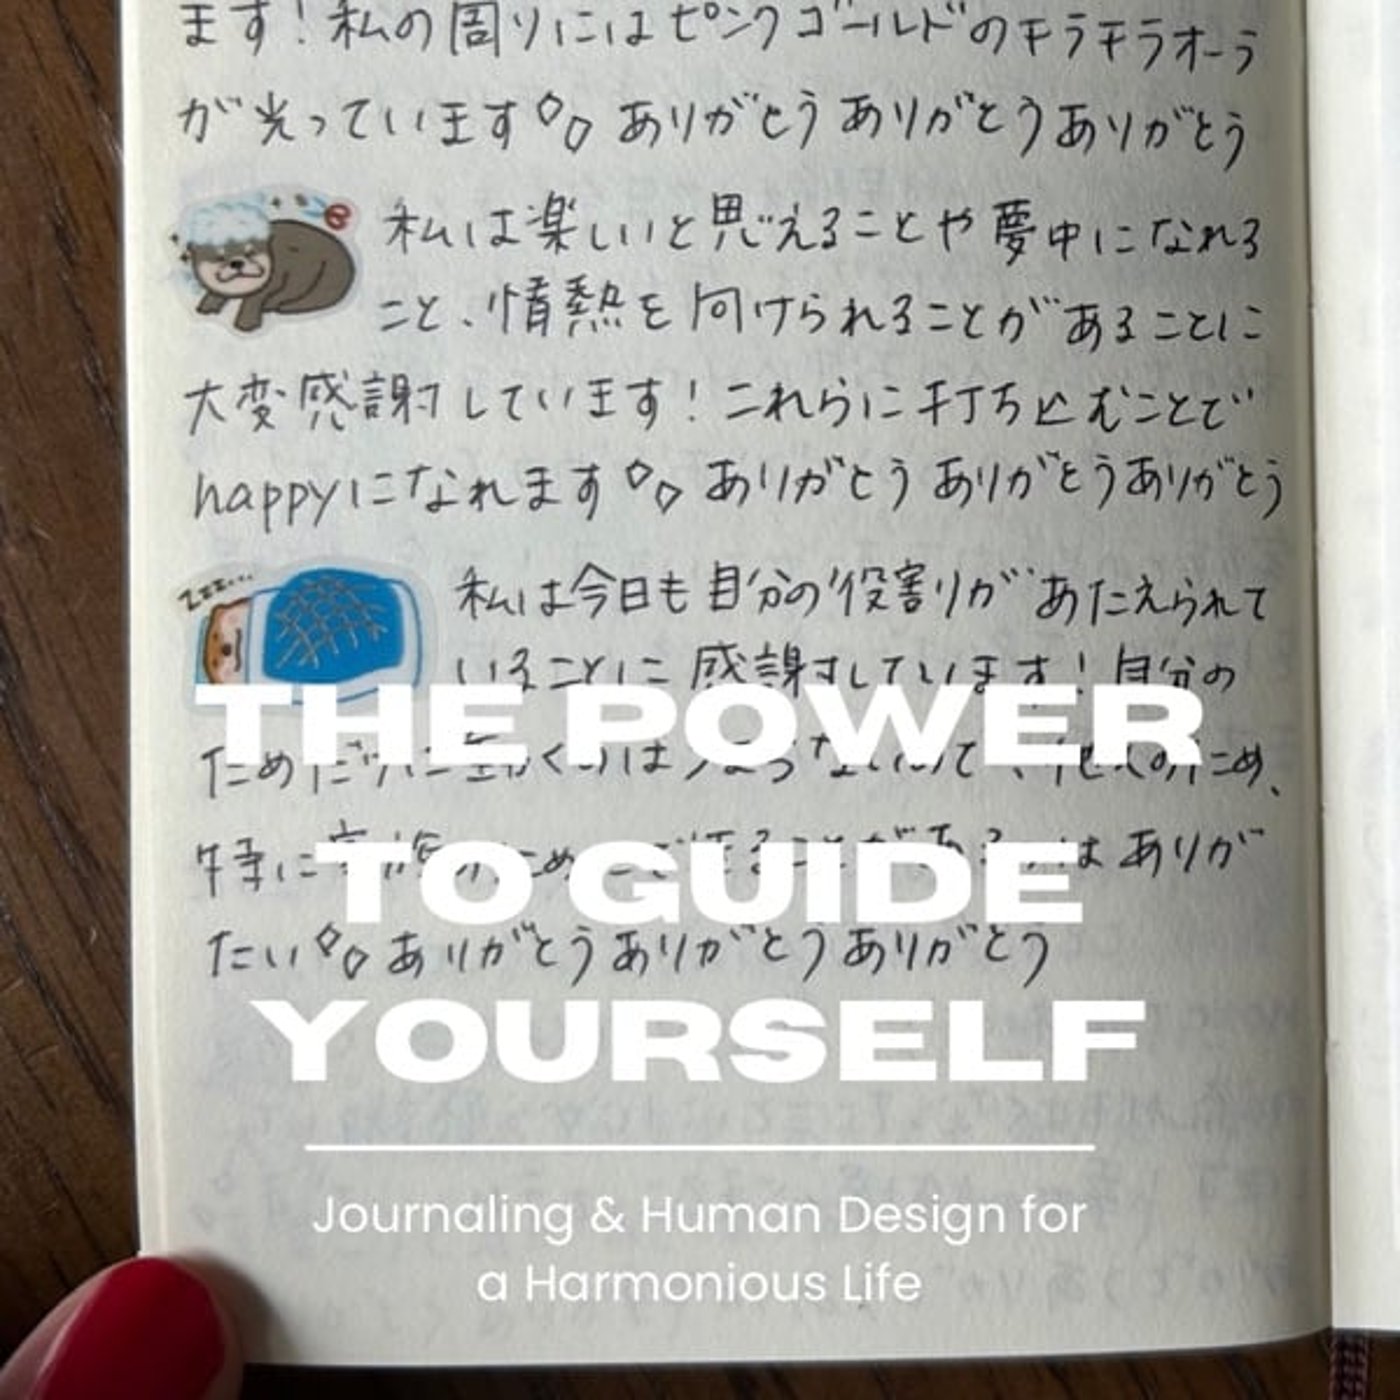 ます！私の周りにはピンクゴールドのキラキラオーラ
が光っています ありがとう ありがとう ありがとう
私は楽しいと思えることや夢中になれる
こと、情熱を向けられることがあることに
大変感謝しています！これらに打ち込むことで
happyになれます ありがとう ありがとう ありがとう
zzz...
私は今日も自分の役割りがあたえられて
いることに感謝しています！自分の
THE POWER
ためだけに動くのは 、他人のため、
特に家族のため ありが
TO GUIDE
たい ありがとう ありがとう ありがとう
YOURSELF
Journaling & Human Design for
a Harmonious Life